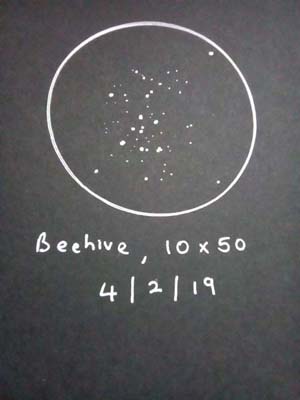 Beehive, 10 x 50
4/2/19